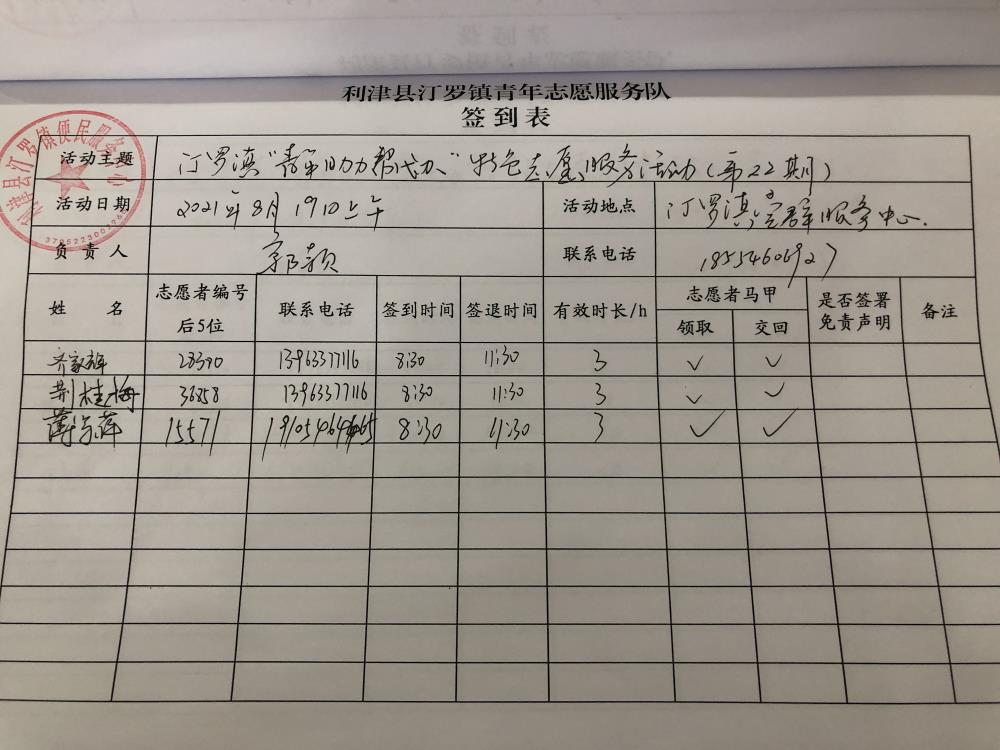 利津县汀罗镇青年志愿服务队
签到表
利津县汀罗镇便民服务中心
活动主题 汀罗镇“青年助力帮代办”特色志愿服务活动(第22期)
活动日期 2021年8月19日上午 活动地点 汀罗镇党群服务中心.
负责人 郭颖 联系电话 18554606927
姓名 志愿者编号后5位 联系电话 签到时间 签退时间 有效时长/h 志愿者马甲 是否签署免责声明 备注
领取 交回
齐家雄 28390 13963377116 8:30 11:30 3 ✓ ✓
荆桂梅 36858 13963377116 8:30 11:30 3 ✓ ✓
15571 8:30 11:30 3 ✓ ✓